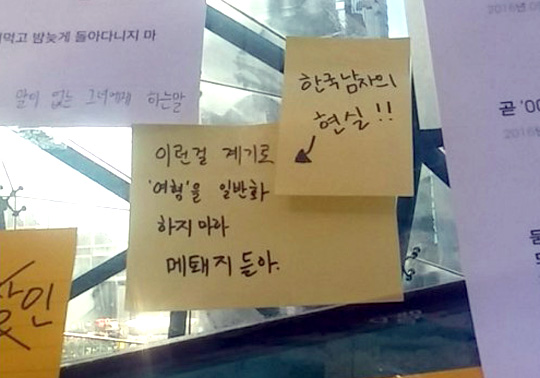 먹고 밤늦게 돌아다니지 마
말이 없는 그녀에게 하는말
한국남자의
현실!!
이런걸 계기로
'여혐'을 일반화
하지 마라
메퇘지 들아.
곧 '00